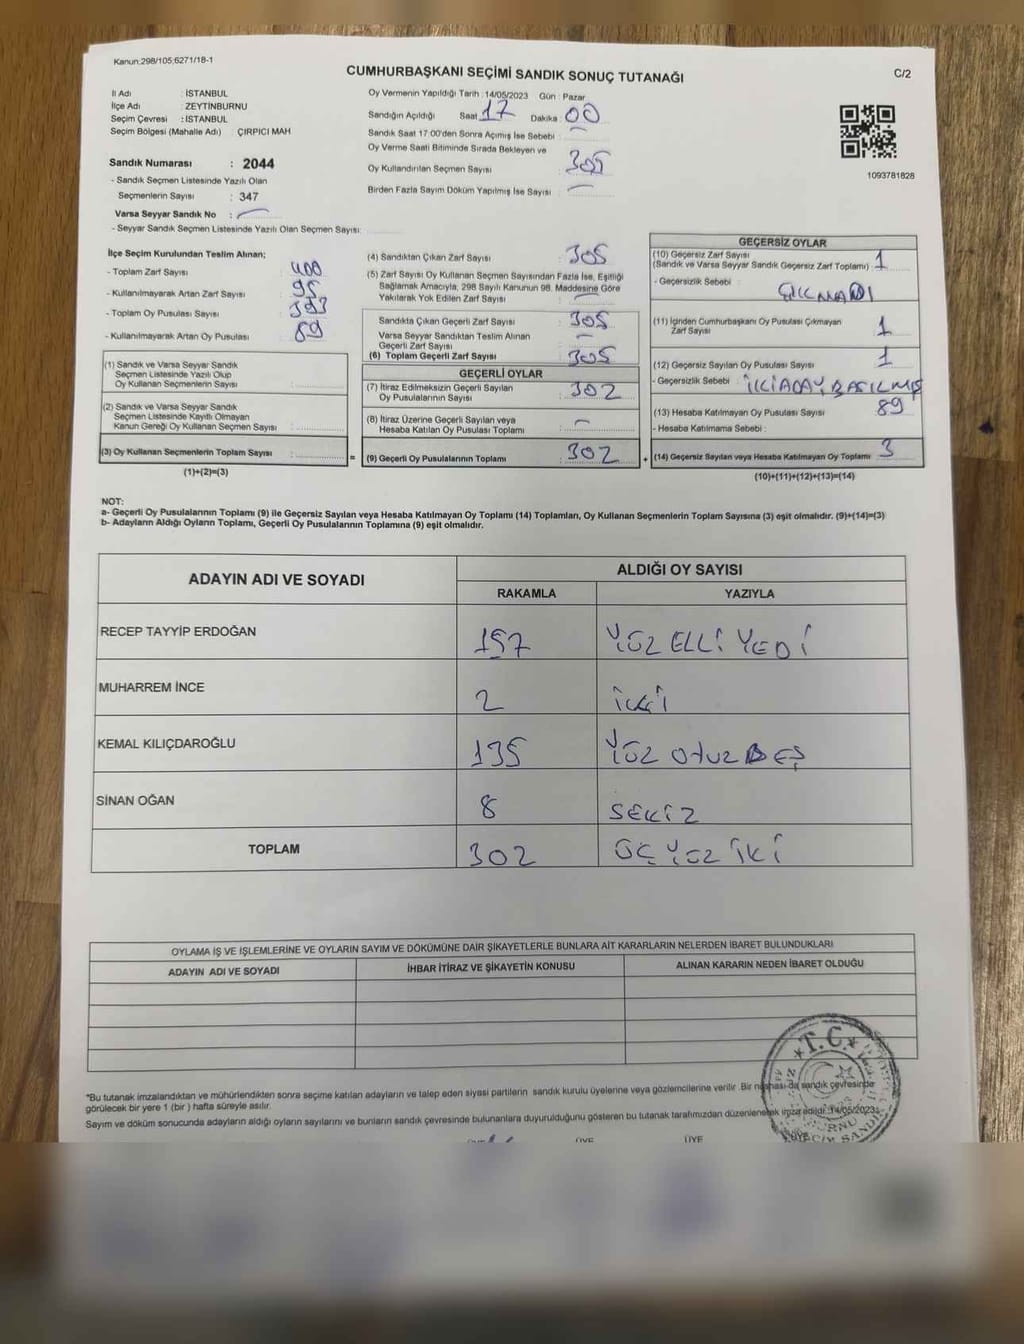 Kanun:298/105;6271/18-1
CUMHURBAŞKANI SEÇİMİ SANDIK SONUÇ TUTANAĞI
C/2
İl Adı : İSTANBUL
İlçe Adı : ZEYTİNBURNU
Seçim Çevresi : İSTANBUL
Seçim Bölgesi (Mahalle Adı) : ÇIRPICI MAH
Sandık Numarası : 2044
- Sandık Seçmen Listesinde Yazılı Olan
Seçmenlerin Sayısı : 347
Varsa Seyyar Sandık No :
- Seyyar Sandık Seçmen Listesinde Yazılı Olan Seçmen Sayısı:
Oy Vermenin Yapıldığı Tarih : 14/05/2023 Gün : Pazar
Sandığın Açıldığı Saat 17 Dakika : 00
Sandık Saat 17:00'den Sonra Açmış İse Sebebi :
Oy Verme Saati Bitiminde Sırada Bekleyen ve
Oy Kullandırılan Seçmen Sayısı : 305
Birden Fazla Sayım Döküm Yapılmış İse Sayısı :
1093781828
İlçe Seçim Kurulundan Teslim Alınan;
- Toplam Zarf Sayısı : 400
- Kullanılmayarak Artan Zarf Sayısı : 95
- Toplam Oy Pusulası Sayısı : 393
- Kullanılmayarak Artan Oy Pusulası : 89
(1) Sandık ve Varsa Seyyar Sandık
Seçmen Listesinde Yazılı Olup
Oy Kullanan Seçmenlerin Sayısı :
(2) Sandık ve Varsa Seyyar Sandık
Seçmen Listesinde Kayıtlı Olmayan
Kanun Gereği Oy Kullanan Seçmen Sayısı :
(3) Oy Kullanan Seçmenlerin Toplam Sayısı : =
(1)+(2)=(3)
(4) Sandıktan Çıkan Zarf Sayısı : 305
(5) Zarf Sayısı Oy Kullanan Seçmen Sayısından Fazla İse, Eşitliği
Sağlamak Amacıyla, 298 Sayılı Kanunun 98. Maddesine Göre
Yakılarak Yok Edilen Zarf Sayısı :
Sandıkta Çıkan Geçerli Zarf Sayısı : 305
Varsa Seyyar Sandıktan Teslim Alınan
Geçerli Zarf Sayısı :
(6) Toplam Geçerli Zarf Sayısı : 305
GEÇERLİ OYLAR
(7) İtiraz Edilmeksizin Geçerli Sayılan
Oy Pusulalarının Sayısı : 302
(8) İtiraz Üzerine Geçerli Sayılan veya
Hesaba Katılan Oy Pusulası Toplamı :
(9) Geçerli Oy Pusulalarının Toplamı : 302 +
GEÇERSİZ OYLAR
(10) Geçersiz Zarf Sayısı
(Sandık ve Varsa Seyyar Sandık Geçersiz Zarf Toplamı) : 1
- Geçersizlik Sebebi : ÇIKMADI
(11) İçinden Cumhurbaşkanı Oy Pusulası Çıkmayan
Zarf Sayısı : 1
(12) Geçersiz Sayılan Oy Pusulası Sayısı : 1
- Geçersizlik Sebebi : İKİ ADAY BASILMIŞ
(13) Hesaba Katılmayan Oy Pusulası Sayısı : 89
- Hesaba Katılmama Sebebi :
(14) Geçersiz Sayılan veya Hesaba Katılmayan Oy Toplamı : 3
(10)+(11)+(12)+(13)=(14)
NOT:
a- Geçerli Oy Pusulalarının Toplamı (9) ile Geçersiz Sayılan veya Hesaba Katılmayan Oy Toplamı (14) Toplamları, Oy Kullanan Seçmenlerin Toplam Sayısına (3) eşit olmalıdır. (9)+(14)=(3)
b- Adayların Aldığı Oyların Toplamı, Geçerli Oy Pusulalarının Toplamına (9) eşit olmalıdır.
ADAYIN ADI VE SOYADI ALDIĞI OY SAYISI
RAKAMLA YAZIYLA
RECEP TAYYİP ERDOĞAN 157 YÜZ ELLİ YEDİ
MUHARREM İNCE 2 İKİ
KEMAL KILIÇDAROĞLU 135 YÜZ OTUZ BEŞ
SİNAN OĞAN 8 SEKİZ
TOPLAM 302 ÜÇ YÜZ İKİ
OYLAMA İŞ VE İŞLEMLERİNE VE OYLARIN SAYIM VE DÖKÜMÜNE DAİR ŞİKAYETLERLE BUNLARA AİT KARARLARIN NELERDEN İBARET BULUNDUKLARI
ADAYIN ADI VE SOYADI İHBAR İTİRAZ VE ŞİKAYETİN KONUSU ALINAN KARARIN NEDEN İBARET OLDUĞU
T.C.
*Bu tutanak imzalandıktan ve mühürlendikten sonra seçime katılan adayların ve talep eden siyasi partilerin sandık kurulu üyelerine veya gözlemcilerine verilir. Bir nüshası da sandık çevresinde
görülecek bir yere 1 (bir) hafta süreyle asılır.
Sayım ve döküm sonucunda adayların aldığı oyların sayılarını ve bunların sandık çevresinde bulunanlara duyurulduğunu gösteren bu tutanak tarafımızdan düzenlenerek imza edildi. 14/05/2023
ÜYE ÜYE